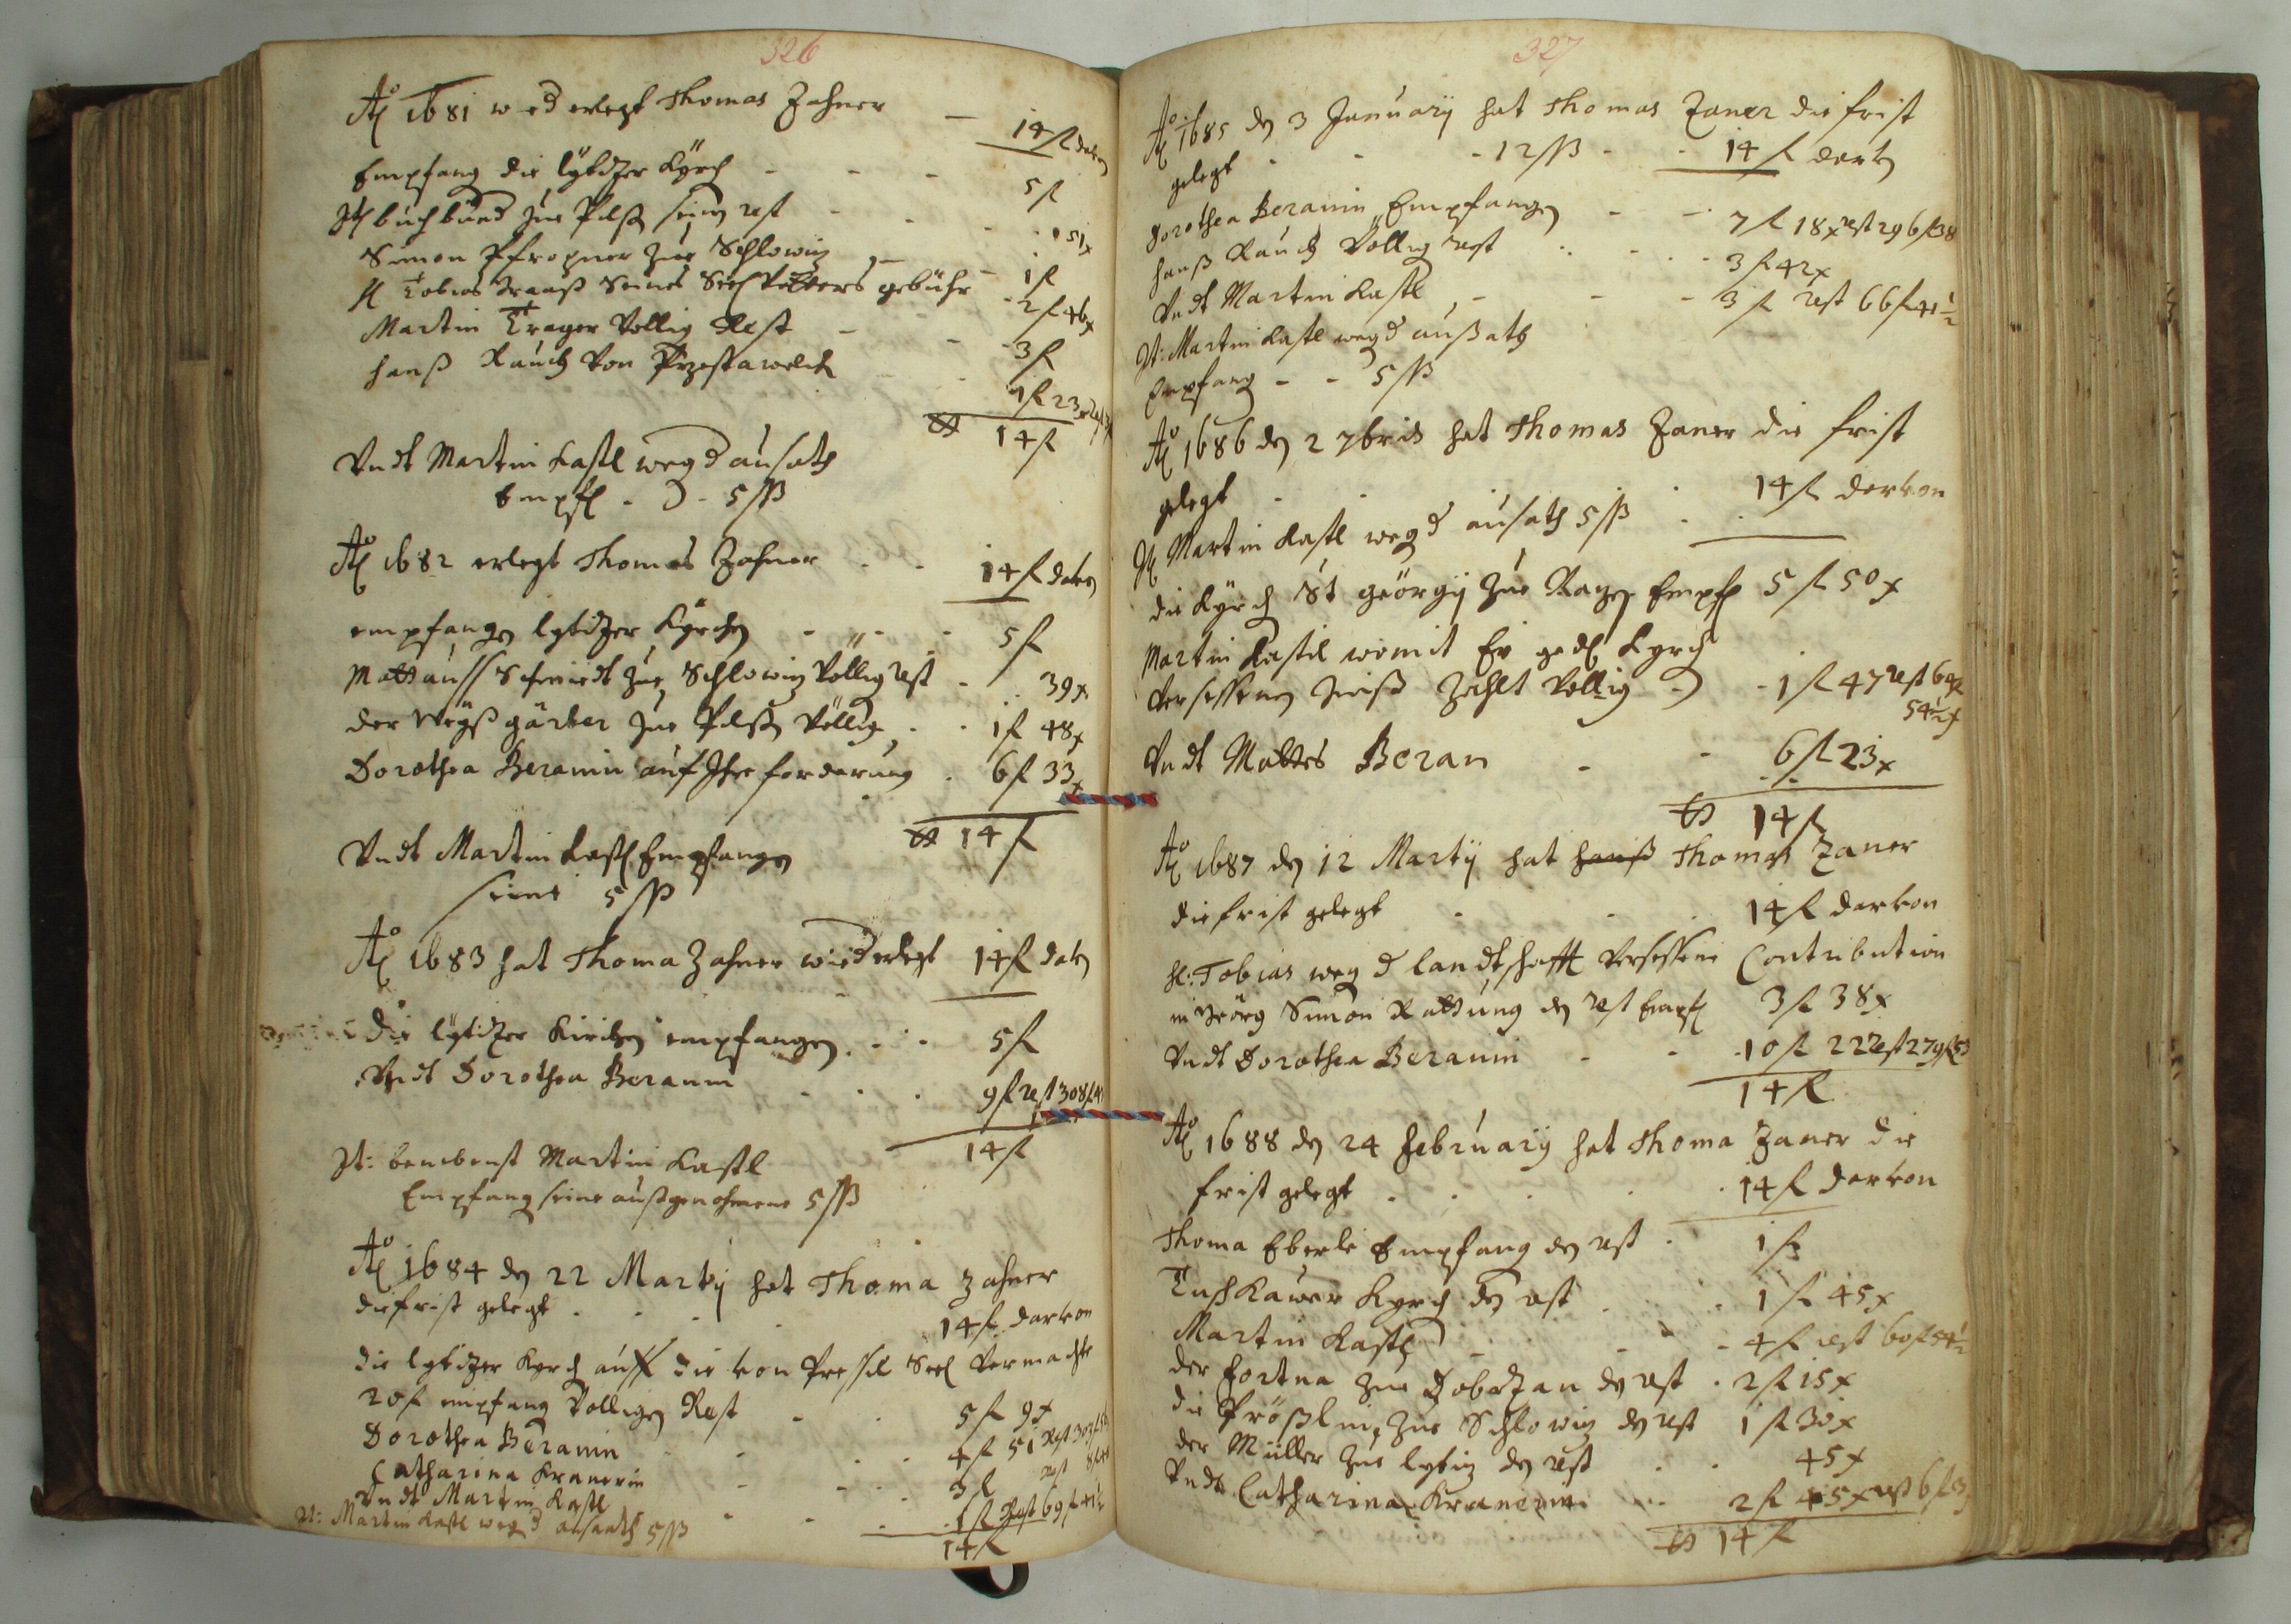 326
Aõ 1681 wied erlegt Thomas Zahner - 14 fl davon
Empfang die lybitzer Kyrch - - - 5 fl
Buchbind zue Pilsß seinen rest - - - 51 x
Simon Pfropner zue Schlowiz - - 1 fl
H Tobias Krauß Seines Seel Vatters gebühr - 2 fl 46 x
Martin Trager Vollig Rest - - - 3 fl
Hanß Rauch von Przestawelck - 1 fl 23 x
14 fl
Vndt Martin Kastl weg d ausath
Empf - 5 ß
Aõ 1682 erlegt Thomas Zahner - - 14 fl davon
empfangen lybitzer Kyrchen - - - 5 fl
Mattauß Schmiedt zue Schlowiz Völlig rest - 39 x
der Weysgärber zue Pilsß Völlig - - 1 fl 48 x
Dorothea Beranin auf Ihre forderung - 6 fl 33 x
14 fl
Vndt Martin Kastl Empfangen
seine 5 ß
Aõ 1683 hat Thoma Zahner wied erlegt 14 fl davon
die lybitzer Kirchen empfangen - - 5 fl
Vndt Dorothea Beranin - - - 9 fl rest 308 fl 4
14 fl
It: Martin Kastl
Empfang seine außgenohmene 5 ß
Aõ 1684 den 22 Martÿ hat Thoma Zahner
die frist gelegt - - - 14 fl darvon
die lybitzer Kyrch auff die von Pressl Seel Vermachte
20 fl empfang Völligen Rest - - 5 fl 9 x
Dorothea Beranin - - - 4 fl 51 Rest 303 fl
Catharina Kranerin - - - 3 fl rest 8 fl
Vndt Martin Kastl - - - 1 fl Rest 69 fl 41 ½
It: Martin Kastl weg d ausath 5 ß
14 fl
327
Aõ 1685 den 3 Januarÿ hat Thomas Zaner die frist
gelegt - - - 12 ß - - 14 fl dervon
Dorothea Beranin Empfangen - - 7 fl 18 x rest 296 fl 38
Hanß Rauch Völlig rest - - - 3 fl 42 x
Vndt Martin Kastl - - - 3 fl rest 66 fl 41 ½
It: Martin Kastl weg d außath
Empfang - - 5 ß
Aõ 1686 den 2 7bris hat Thomas Zaner die frist
gelegt - - - 14 fl dervon
It Martin Kastl weg d ausath 5 ß
die Kyrch St Geörgÿ zue Empf 5 fl 50 x
Martin Kastl womit Er Kyrch
Versessenen Zinß Zahlt Vollig - - 1 fl 47 rest 64 fl
54 ½ x
Vndt Mattes Beran - - 6 fl 23 x
14 fl
Aõ 1687 den 12 Martÿ hat hanß Thomas Zaner
die frist gelegt - - - 14 fl darvon
H: Tobias weg d landtschafft Versessene Contribution
in Geörg Simon Rattung den rest Empf 3 fl 38 x
Vndt Dorothea Beranin - - 10 fl 22 Rest 279 fl 53
14 fl
Aõ 1688 den 24 Februarÿ hat Thoma Zaner die
frist gelegt - - - 14 fl darvon
Thoma Eberle Empfang den rest - 1 fl
Tuschkawer Kyrch den rest - - 1 fl 45 x
Martin Kastl - - - 4 fl rest 60 fl 54 ½
der Fortna zue Dobrzan den rest - 2 fl 15 x
die Prößlin zue Schlowiz den rest 1 fl 30 x
der Müller zue lybiz den rest - - 45 x
Vndt Catharina Kranerin - - 2 fl 45 x rest 6 fl
14 fl